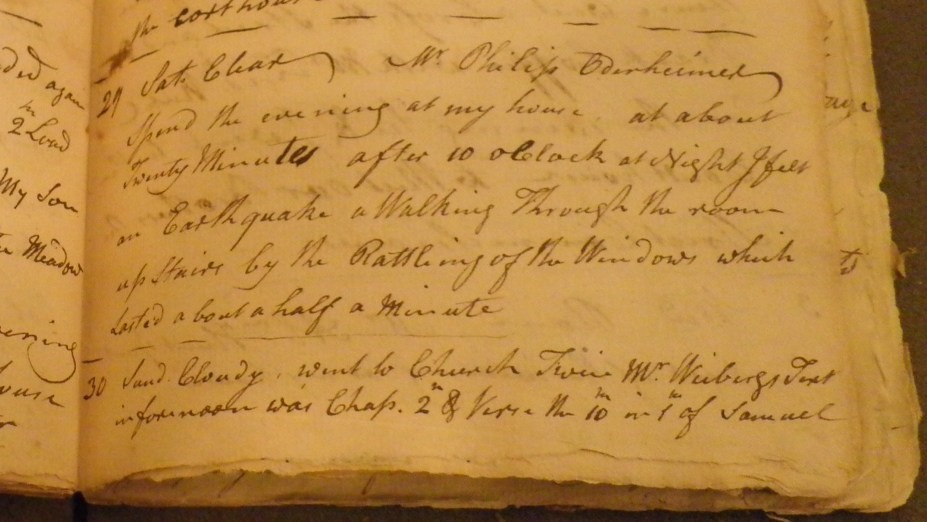 ded again
m
2 Load
My Son
Meadow
ening
the
29 Sat. Clear Mr Philip Oderheimer
Spend the evening at my house at about
Twenty Minutes after 10 oClock at Night I felt
an Earthquake a Walking Through the room
up Stairs by the Rattling of the Windows which
Lasted about a half a Minute
30 Sund. Cloudy. went to Church Twice Mr. Wiebergs Text
in forenoon was Chap. 2m & Verse the 10m in 1m of Samuel